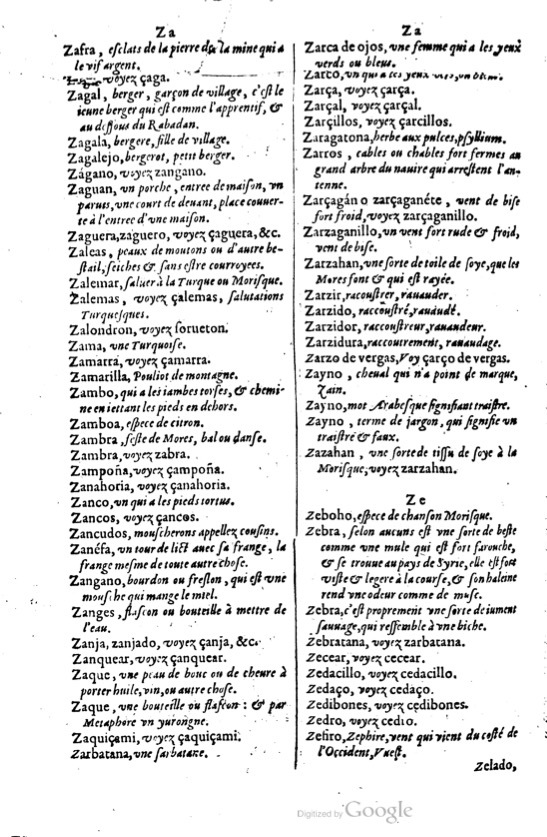 Za
Zafra, esclats de la pierre de la mine qui a
le vif argent.
voyez çaga.
Zagal, berger, garçon de village, c'est le
ieune berger qui est comme l'apprentif, &
au dessous du Rabadan.
Zagala, bergere, fille de village.
Zagalejo, bergerot, petit berger.
Zágano, voyez zangano.
Zaguan, un porche, entree de maison, un
paruis, une court de deuant, place couuer-
te à l'entree d'vne maison.
Zaguera, zaguero, voyez çaguera, &c.
Zaleas, peaux de moutons ou d'autre be-
stail, seiches & sans estre courroyees.
Zalemar, saluer à la Turque ou Morisque.
Zalemas, voyez çalemas, salutations
Turquesques.
Zalondron, voyez forueton.
Zama, vne Turquoise.
Zamarra, voyez çamarra.
Zamarilla, Pouliot de montagne.
Zambo, qui a les iambes torses, & chemi-
ne en iettant les pieds en dehors.
Zamboa, espece de citron.
Zambra, feste de Mores, bal ou danse.
Zambra, voyez zabra.
Zampoña, voyez çampoña.
Zanahoria, voyez çanahoria.
Zanco, vn qui a les pieds tortus.
Zancos, voyez çancos.
Zancudos, mouscherons appellez cousins.
Zanéfa, vn tour de lict auec sa frange, la
frange mesme de toute autre chose.
Zangano, bourdon ou freslon, qui est vne
mousche qui mange le miel.
Zanges, flascon ou bouteille à mettre de
l'eau.
Zanja, zanjado, voyez çanja, &c.
Zanquear, voyez çanquear.
Zaque, vne peau de bouc ou de cheure à
porter huile, vin, ou autre chose.
Zaque, vne bouteille ou flascon: & par
Metaphore vn yurongne.
Zaquiçami, voyez çaquiçami.
Zarbatana, vne sarbatane.
Za
Zarca de ojos, vne femme qui a les yeux
verds ou bleus.
Zarco, vn qui a les yeux vers, ou bleus.
Zarça, voyez çarça.
Zarçal, voyez çarçal.
Zarçillos, voyez çarcillos.
Zaragatona, herbe aux pulces, psyllium.
Zarros, cables ou chables fort fermes au
grand arbre du nauire qui arrestent l'an-
tenne.
Zarçagán o zarçaganéte, vent de bise
fort froid, voyez zarçaganillo.
Zarzaganillo, vn vent fort rude & froid,
vent de bise.
Zarzahan, vne sorte de toile de soye, que les
Mores font & qui est rayée.
Zarzir, racoustrer, rauauder.
Zarzido, racoustré, rauaudé.
Zarzidor, raccoustreur, rauaudeur.
Zarzidura, raccoutrement, rauaudage.
Zarzo de vergas, Voy çarço de vergas.
Zayno, cheual qui n'a point de marque,
Zain.
Zayno, mot Arabesque signifiant traistre.
Zayno, terme de jargon, qui signifie vn
traistré & faux.
Zazahan, vne sorte de tissu de soye à la
Morisque, voyez zarzahan.
Ze
Zeboho, espece de chanson Morisque.
Zebra, selon aucuns est vne sorte de beste
comme vne mule qui est fort farouche,
& se trouue au pays de Syrie, elle est fort
viste & legere à la course, & son haleine
rend vne odeur comme de musc.
Zebra, c'est proprement vne sorte de iument
sauuage, qui ressemble à vne biche.
Zebratana, voyez zarbatana.
Zecear, voyez cecear.
Zedacillo, voyez cedacillo.
Zedaço, voyez cedaço.
Zedibones, voyez cedibones.
Zedro, voyez cedro.
Zefiro, Zephire, vent qui vient du costé de
l'Occident, Vuest.
Zelado,
Digitized by Google